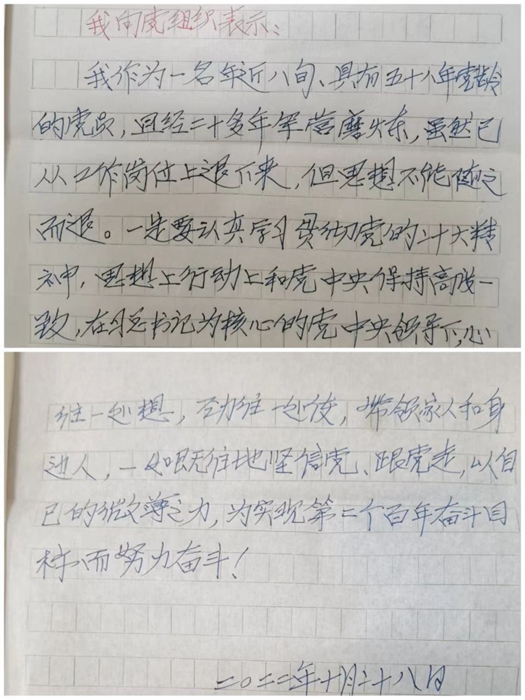 我向党组织表示：
我作为一名年近八旬、具有五十八年党龄
的党员，且经二十多年军营磨炼，虽然已
从工作岗位上退下来，但思想不能随之
而退。一是要认真学习贯彻党的二十大精
神，思想上行动上和党中央保持高度一
致，在习总书记为核心的党中央领导下，心
往一处想，劲往一处使，带领家人和身
边人，一如既往地坚信党、跟党走，以自
己的微薄之力，为实现第二个百年奋斗目
标而努力奋斗！
二〇二二年十月二十八日